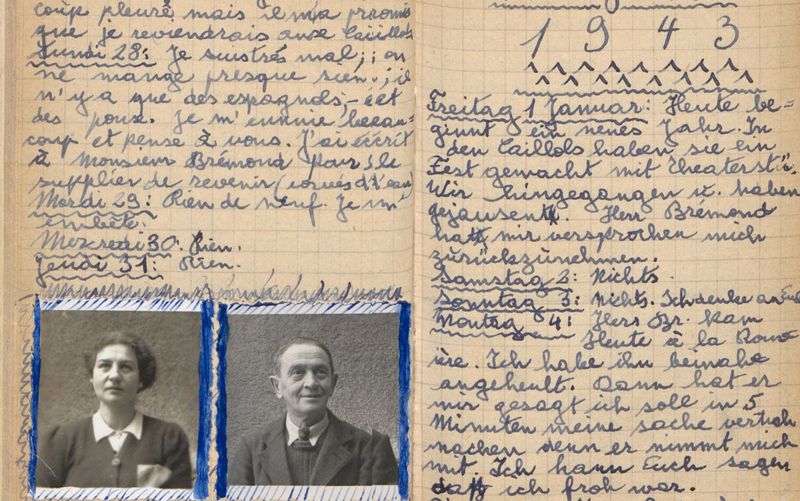 coup pleuré mais il m'a promis
que je reviendrais aux Caillols
Lundi 28: Je suis très mal; on
ne mange presque rien; il
n'y a que des espagnols, et
des poux. Je m'ennuie beau-
coup et pense à vous. J'ai écrit
à Monsieur Brémond pour le
supplier de revenir
Mardi 29: Rien de neuf. Je m'
embête.
Mercredi 30: Rien.
Jeudi 31: Rien.
1943
Freitag 1 Januar: Heute be-
ginnt ein neues Jahr. In
den Caillols haben sie ein
Fest gemacht mit Theaterstü.
Wir hingegangen u. haben
gejausent. Herr Brémond
hat mir versprochen mich
zurückzunehmen.
Samstag 2: Nichts.
Sonntag 3: Nichts. Ich denke an Euch
Montag 4: Herr Br. kam
Heute à la Rou-
ière. Ich habe ihn beinahe
angeheult. Dann hat er
mir gesagt ich soll in 5
Minuten meine sache vertich
machen denn er nimmt mich
mit. Ich kann Euch sagen
daß ich froh war.